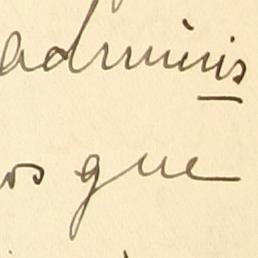 adminis
os que